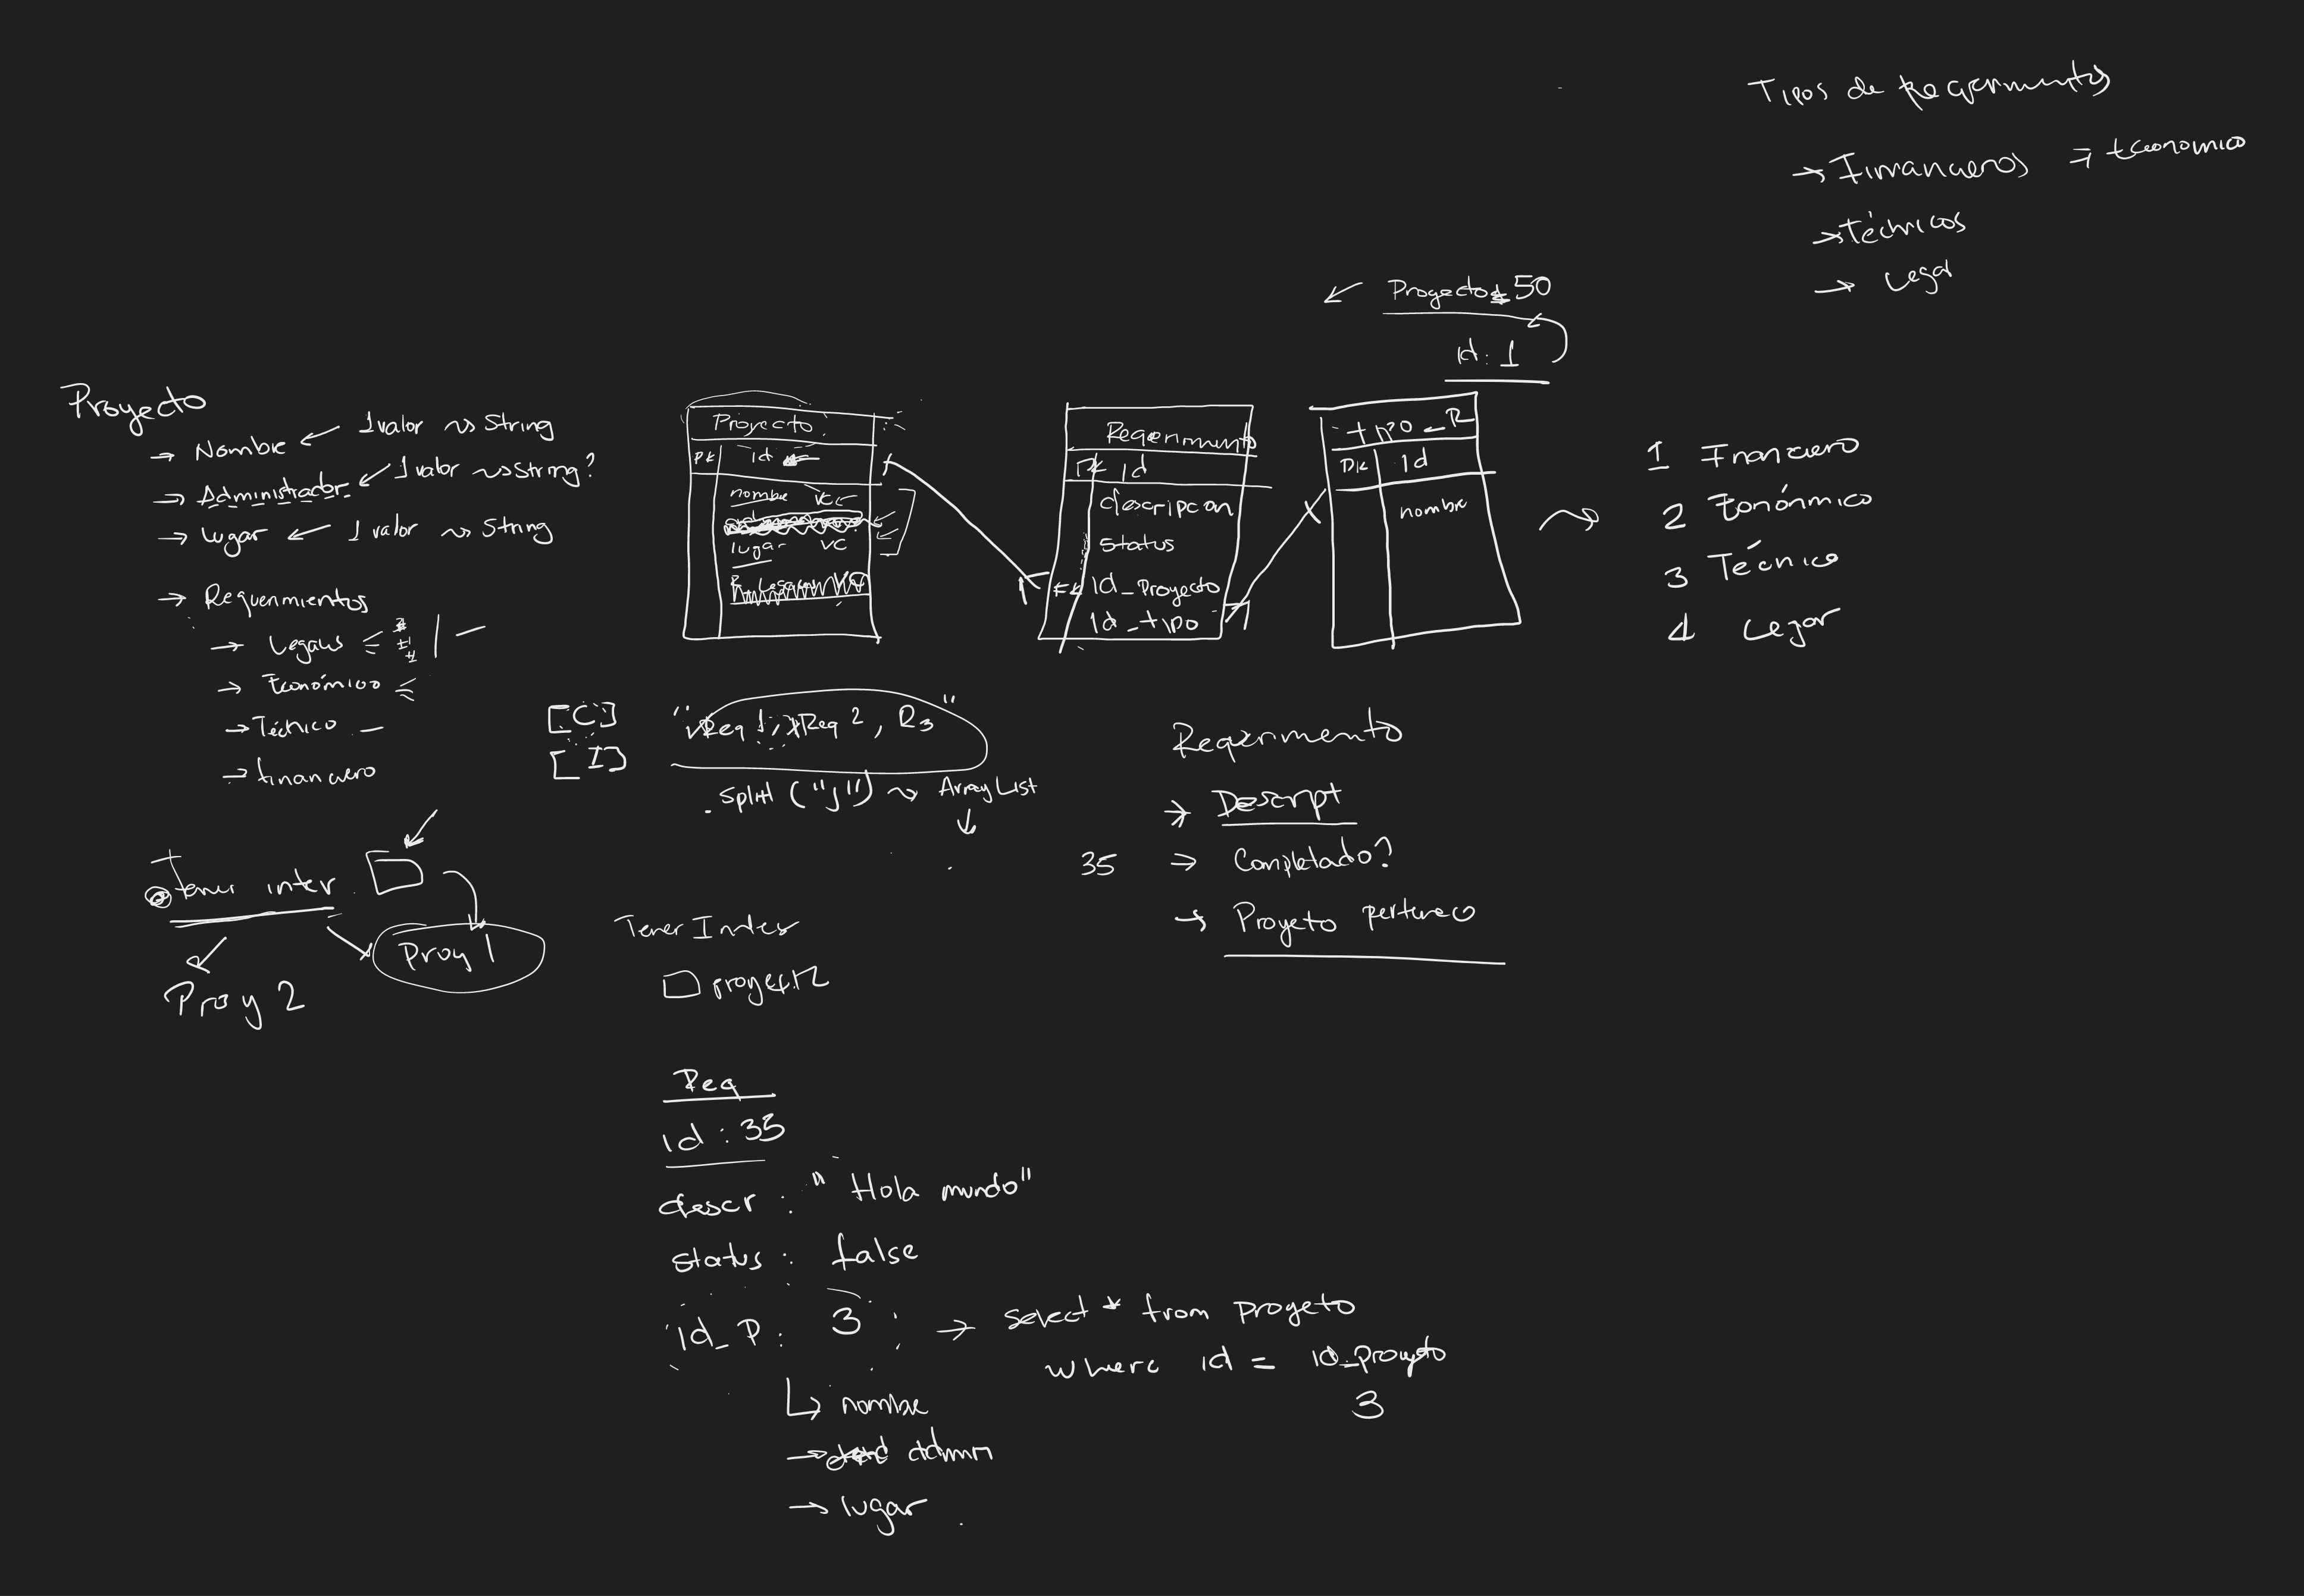 Tipos de Requerimientos
→ Financieros → Economico
→ Técnicos
→ Legal
← Proyecto 50
id: 1
Proyecto
→ Nombre ← 1 valor ~> String
→ Administrador ← 1 valor ~> String?
→ lugar ← 1 valor ~> String
→ Requerimientos
→ Legales
→ Económico
→ Técnico
→ financiero
Proyecto
PK id
nombre VC
lugar VC
Requerimiento
PK Id
descripcion
status
FK id_Proyecto
id_tipo
tipo_R
PK Id
nombre
1 Financiero
2 Económico
3 Técnico
4 Legar
"Req 1, Req 2, R3"
.split (",") ~> ArrayList
Requerimiento
→ Descript
35 → Completado?
→ Proyecto pertenece
Tener inter
Proy 1
Proy 2
Tener Inter
Req
id : 33
descr : "Hola mundo"
status : false
id_P: 3 → select * from proyecto
where id = id_Proyecto
3
nombre
→ admin
→ lugar